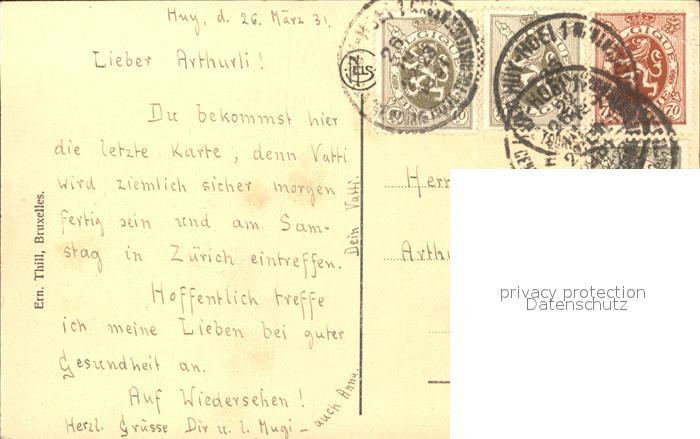 Huy, d. 26. März 31.
Lieber Arthurli!
Du bekommst hier
die letzte Karte, denn Vatti
wird ziemlich sicher morgen
fertig sein und am Sam-
stag in Zürich eintreffen.
Hoffentlich treffe
ich meine Lieben bei guter
Gesundheit an.
Auf Wiedersehen!
Herzl. Grüsse Dir u. l. Mugi –
auch Anna.
Dein Vatti.
Ern. Thill, Bruxelles.
NELS
BELGIQUE
BELGIE
10
BELGIQUE
BELGIQUE
70
Herr
Arthu
privacy protection
Datenschutz